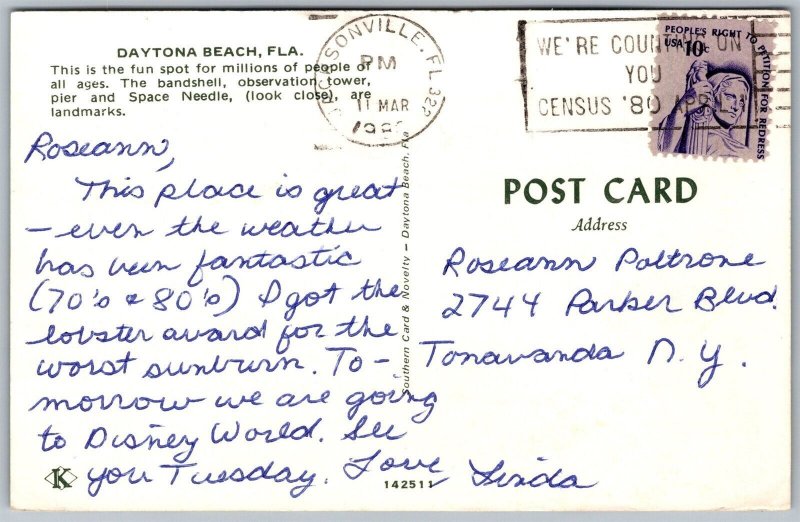 DAYTONA BEACH, FLA.
This is the fun spot for millions of people of
all ages. The bandshell, observation tower,
pier and Space Needle, (look close), are
landmarks.
Roseann,
This place is great
- even the weather
has been fantastic
(70's & 80's) I got the
lobster award for the
worst sunburn. To-
morrow we are going
to Disney World. See
you Tuesday. Love, Linda
K
142511
Southern Card & Novelty - Daytona Beach, Fla
JACKSONVILLE, FL 322
PM
11 MAR
WE'RE COUNTING ON
YOU
CENSUS '80
PEOPLE'S RIGHT TO PETITION FOR REDRESS
USA 10c
POST CARD
Address
Roseann Poltrone
2744 Parker Blvd.
Tonawanda N.Y.